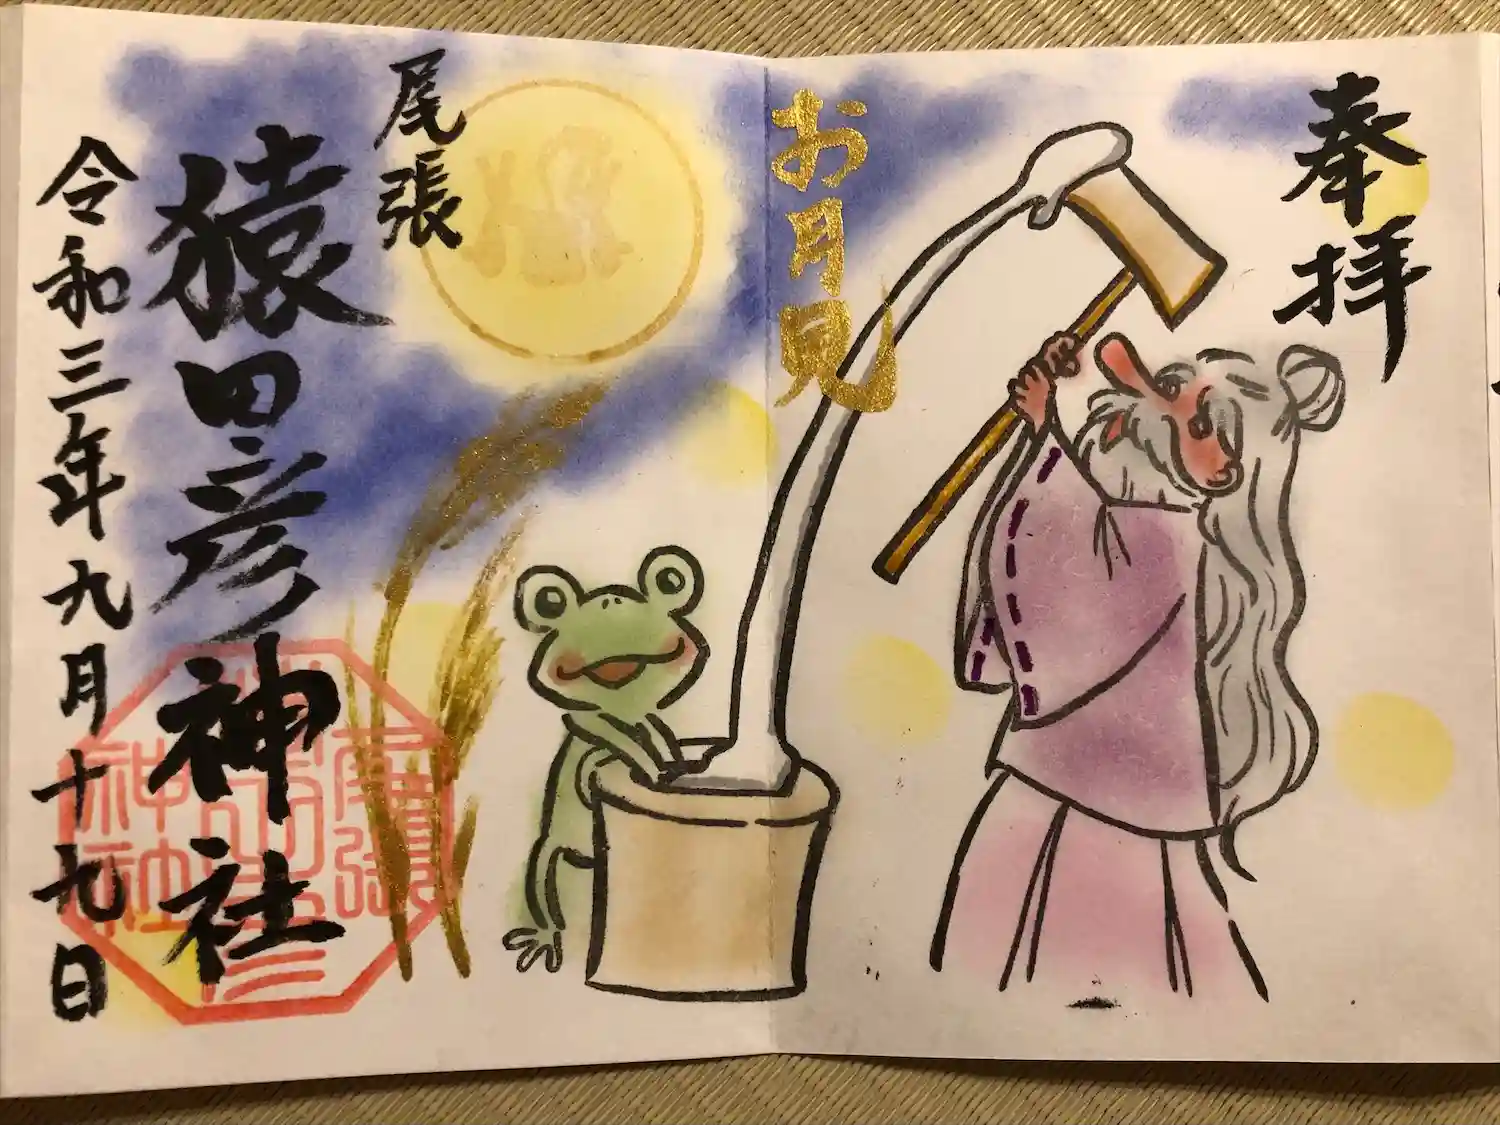 奉拝
お月見
尾張
猿田彦神社
令和三年九月十九日